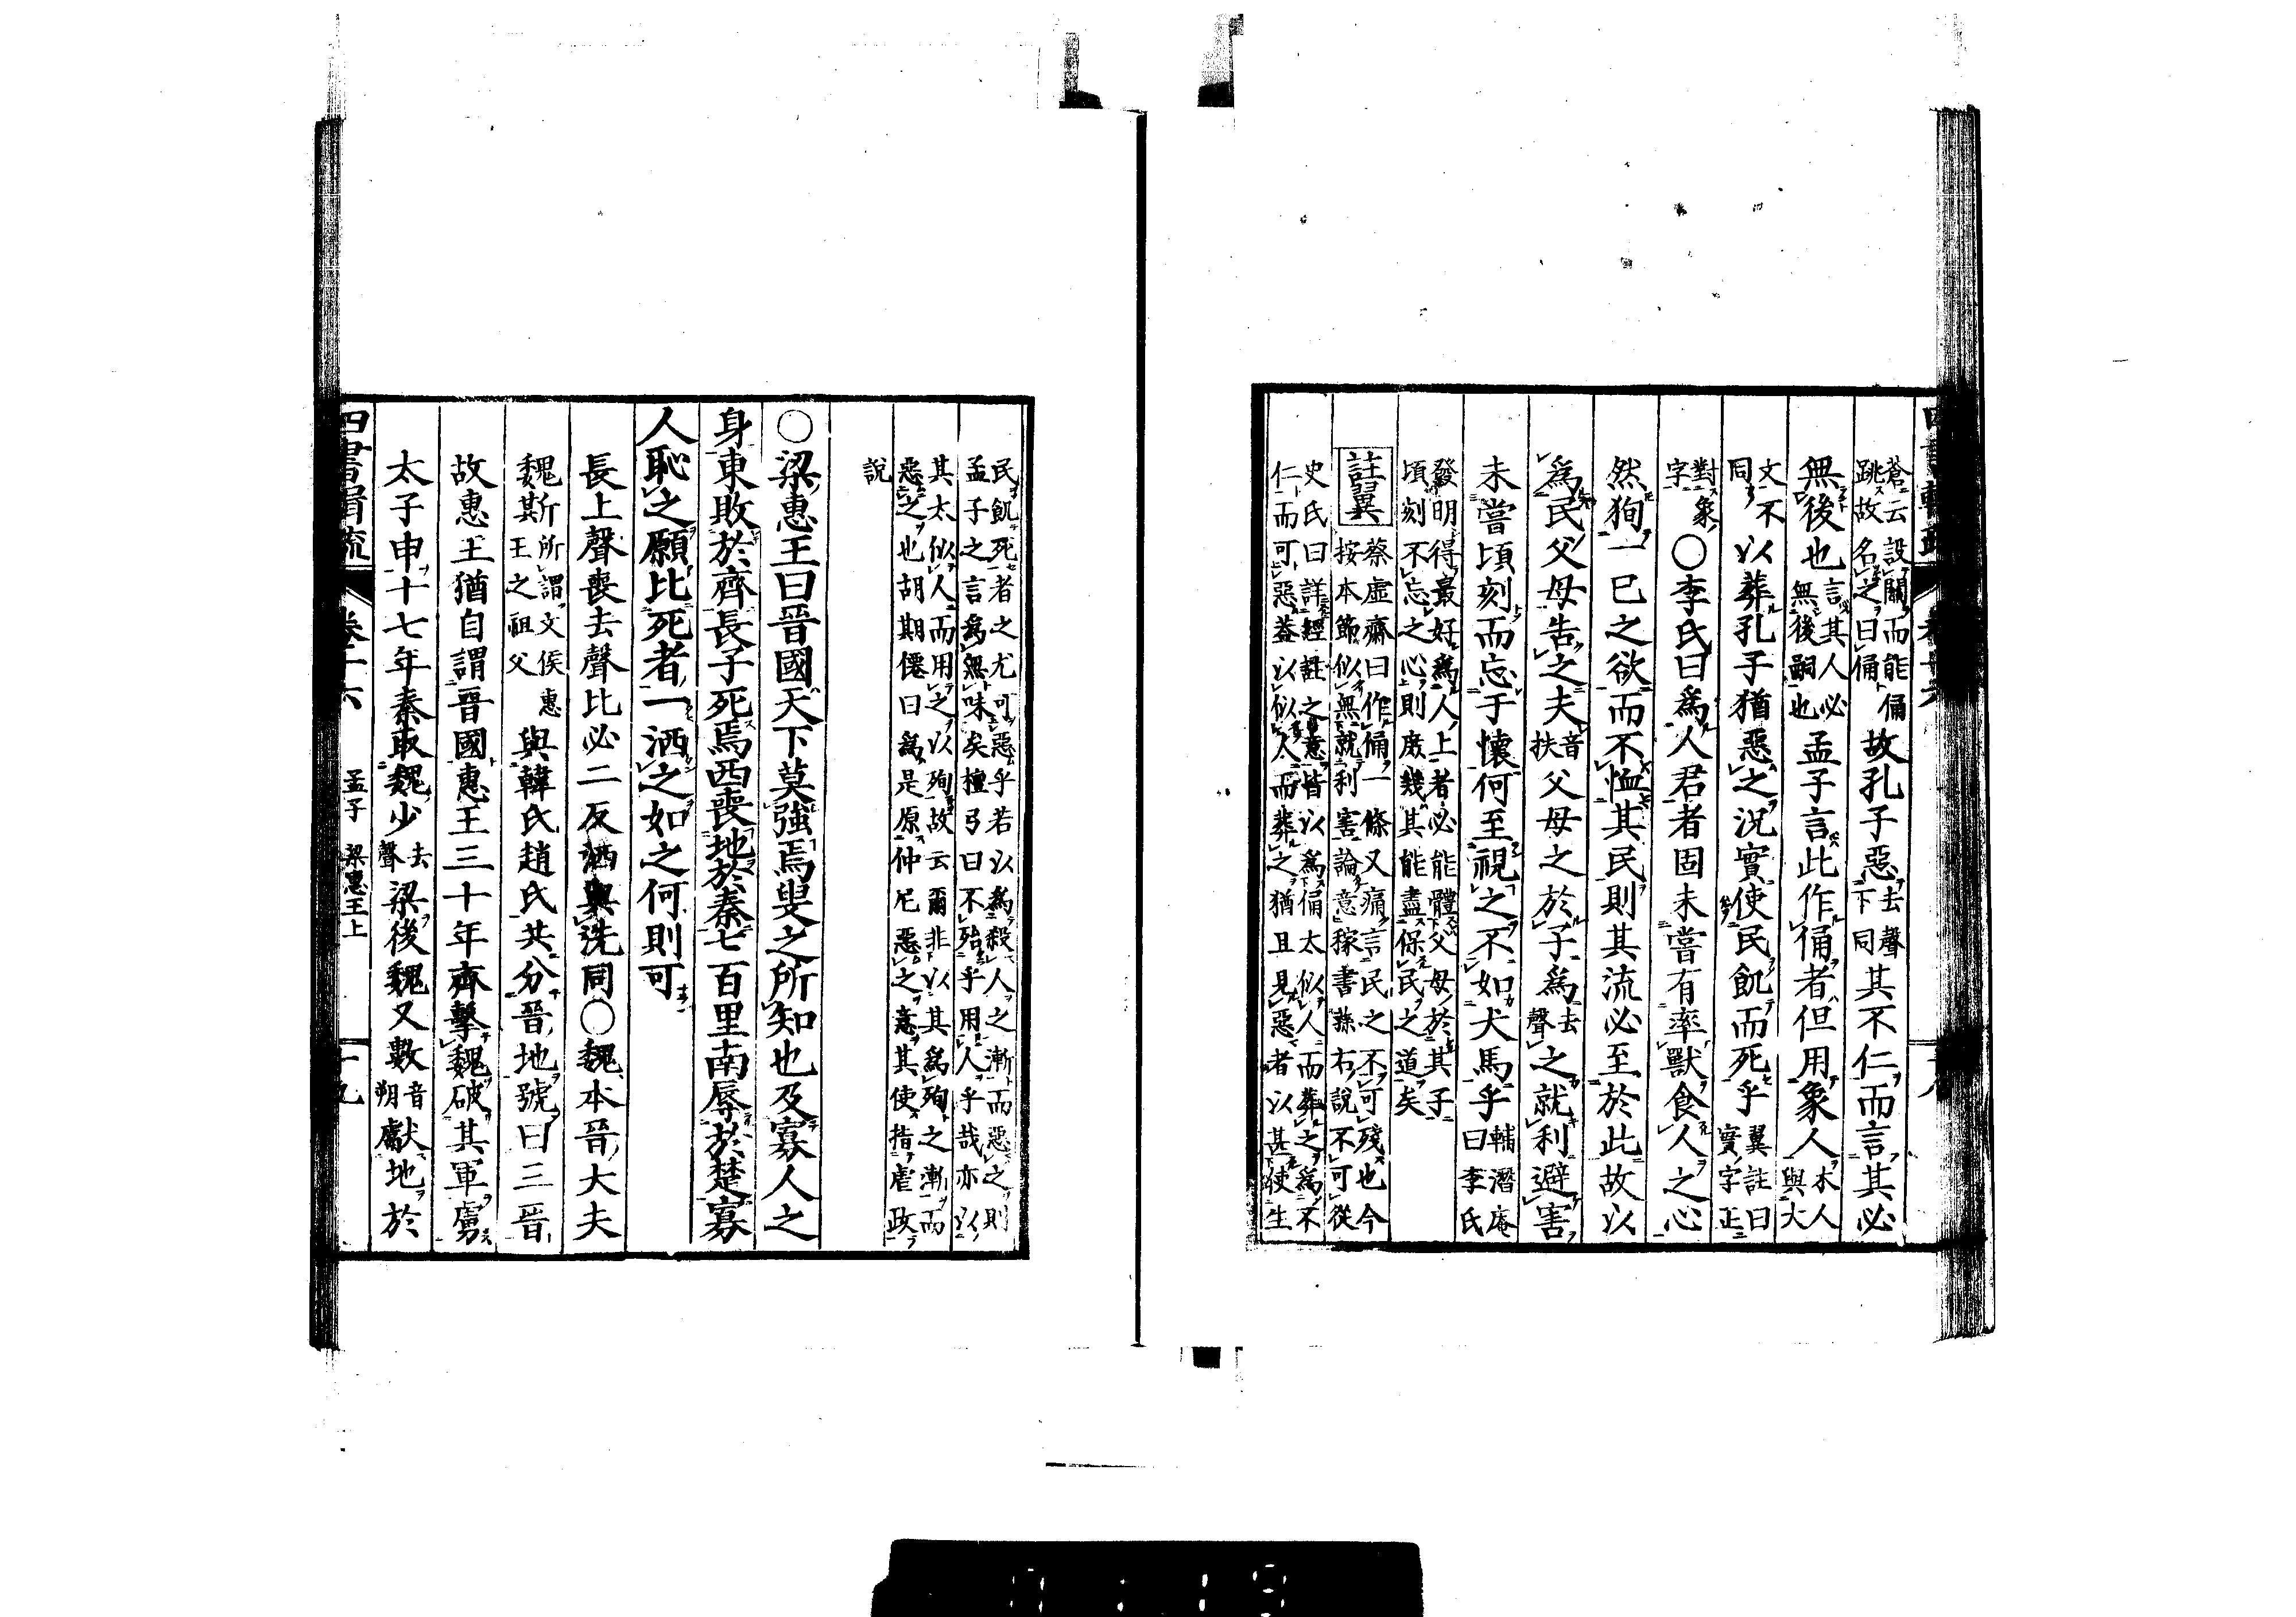 蒼云設關而能俑
跳故名之曰俑
故孔子惡
去聲
下同
其不仁而言其必
無後也
言其人必
無後嗣也
孟子言此作俑者但用象人
本人
與大
文不
同
以葬孔子猶惡之況實使民飢而死乎
翼註曰
實字正
對象
字
○李氏曰爲人君者固未嘗有率獸食人之心
然狥一己之欲而不恤其民則其流必至於此故以
爲民父母告之夫
音
扶
父母之於子爲
去
聲
之就利避害
未嘗頃刻而忘于懷何至視之不如犬馬乎
輔潛庵
曰李氏
發明得最好爲人上者必能體父母於其子
頃刻不忘之心則庶幾其能盡保民之道矣
註翼
蔡虛齋曰作俑一條又痛言民之不可殘也今
按本節似無就利害論意稼書孫右說不可從
史氏曰詳經註之意皆以爲俑太似人而葬之爲不
仁而可惡蓋以似人而葬之猶且見惡者以甚使生
民飢死者之尤可惡乎若以爲殺人之漸而惡之則
孟子之言爲無味矣檀弓曰不殆乎用人乎哉亦以
其太似人而用之以殉故云爾非以其爲殉之漸而
惡之也胡期僊曰爲是原仲尼惡之意其使指虐政
說
○梁惠王曰晉國天下莫強焉叟之所知也及寡人之
身東敗於齊長子死焉西喪地於秦七百里南辱於楚寡
人恥之願比死者一洒之如之何則可
長上聲喪去聲比必二反洒與洗同○魏本晉大夫
魏斯所謂文侯惠
魏其王之祖父
與韓氏趙氏共分晉地號曰三晉
故惠王猶自謂晉國惠王三十年齊擊魏破其軍虜
太子申十七年秦取魏少
去
聲
梁後魏又數
音
朔
獻地於
孟子 梁惠王上
十九